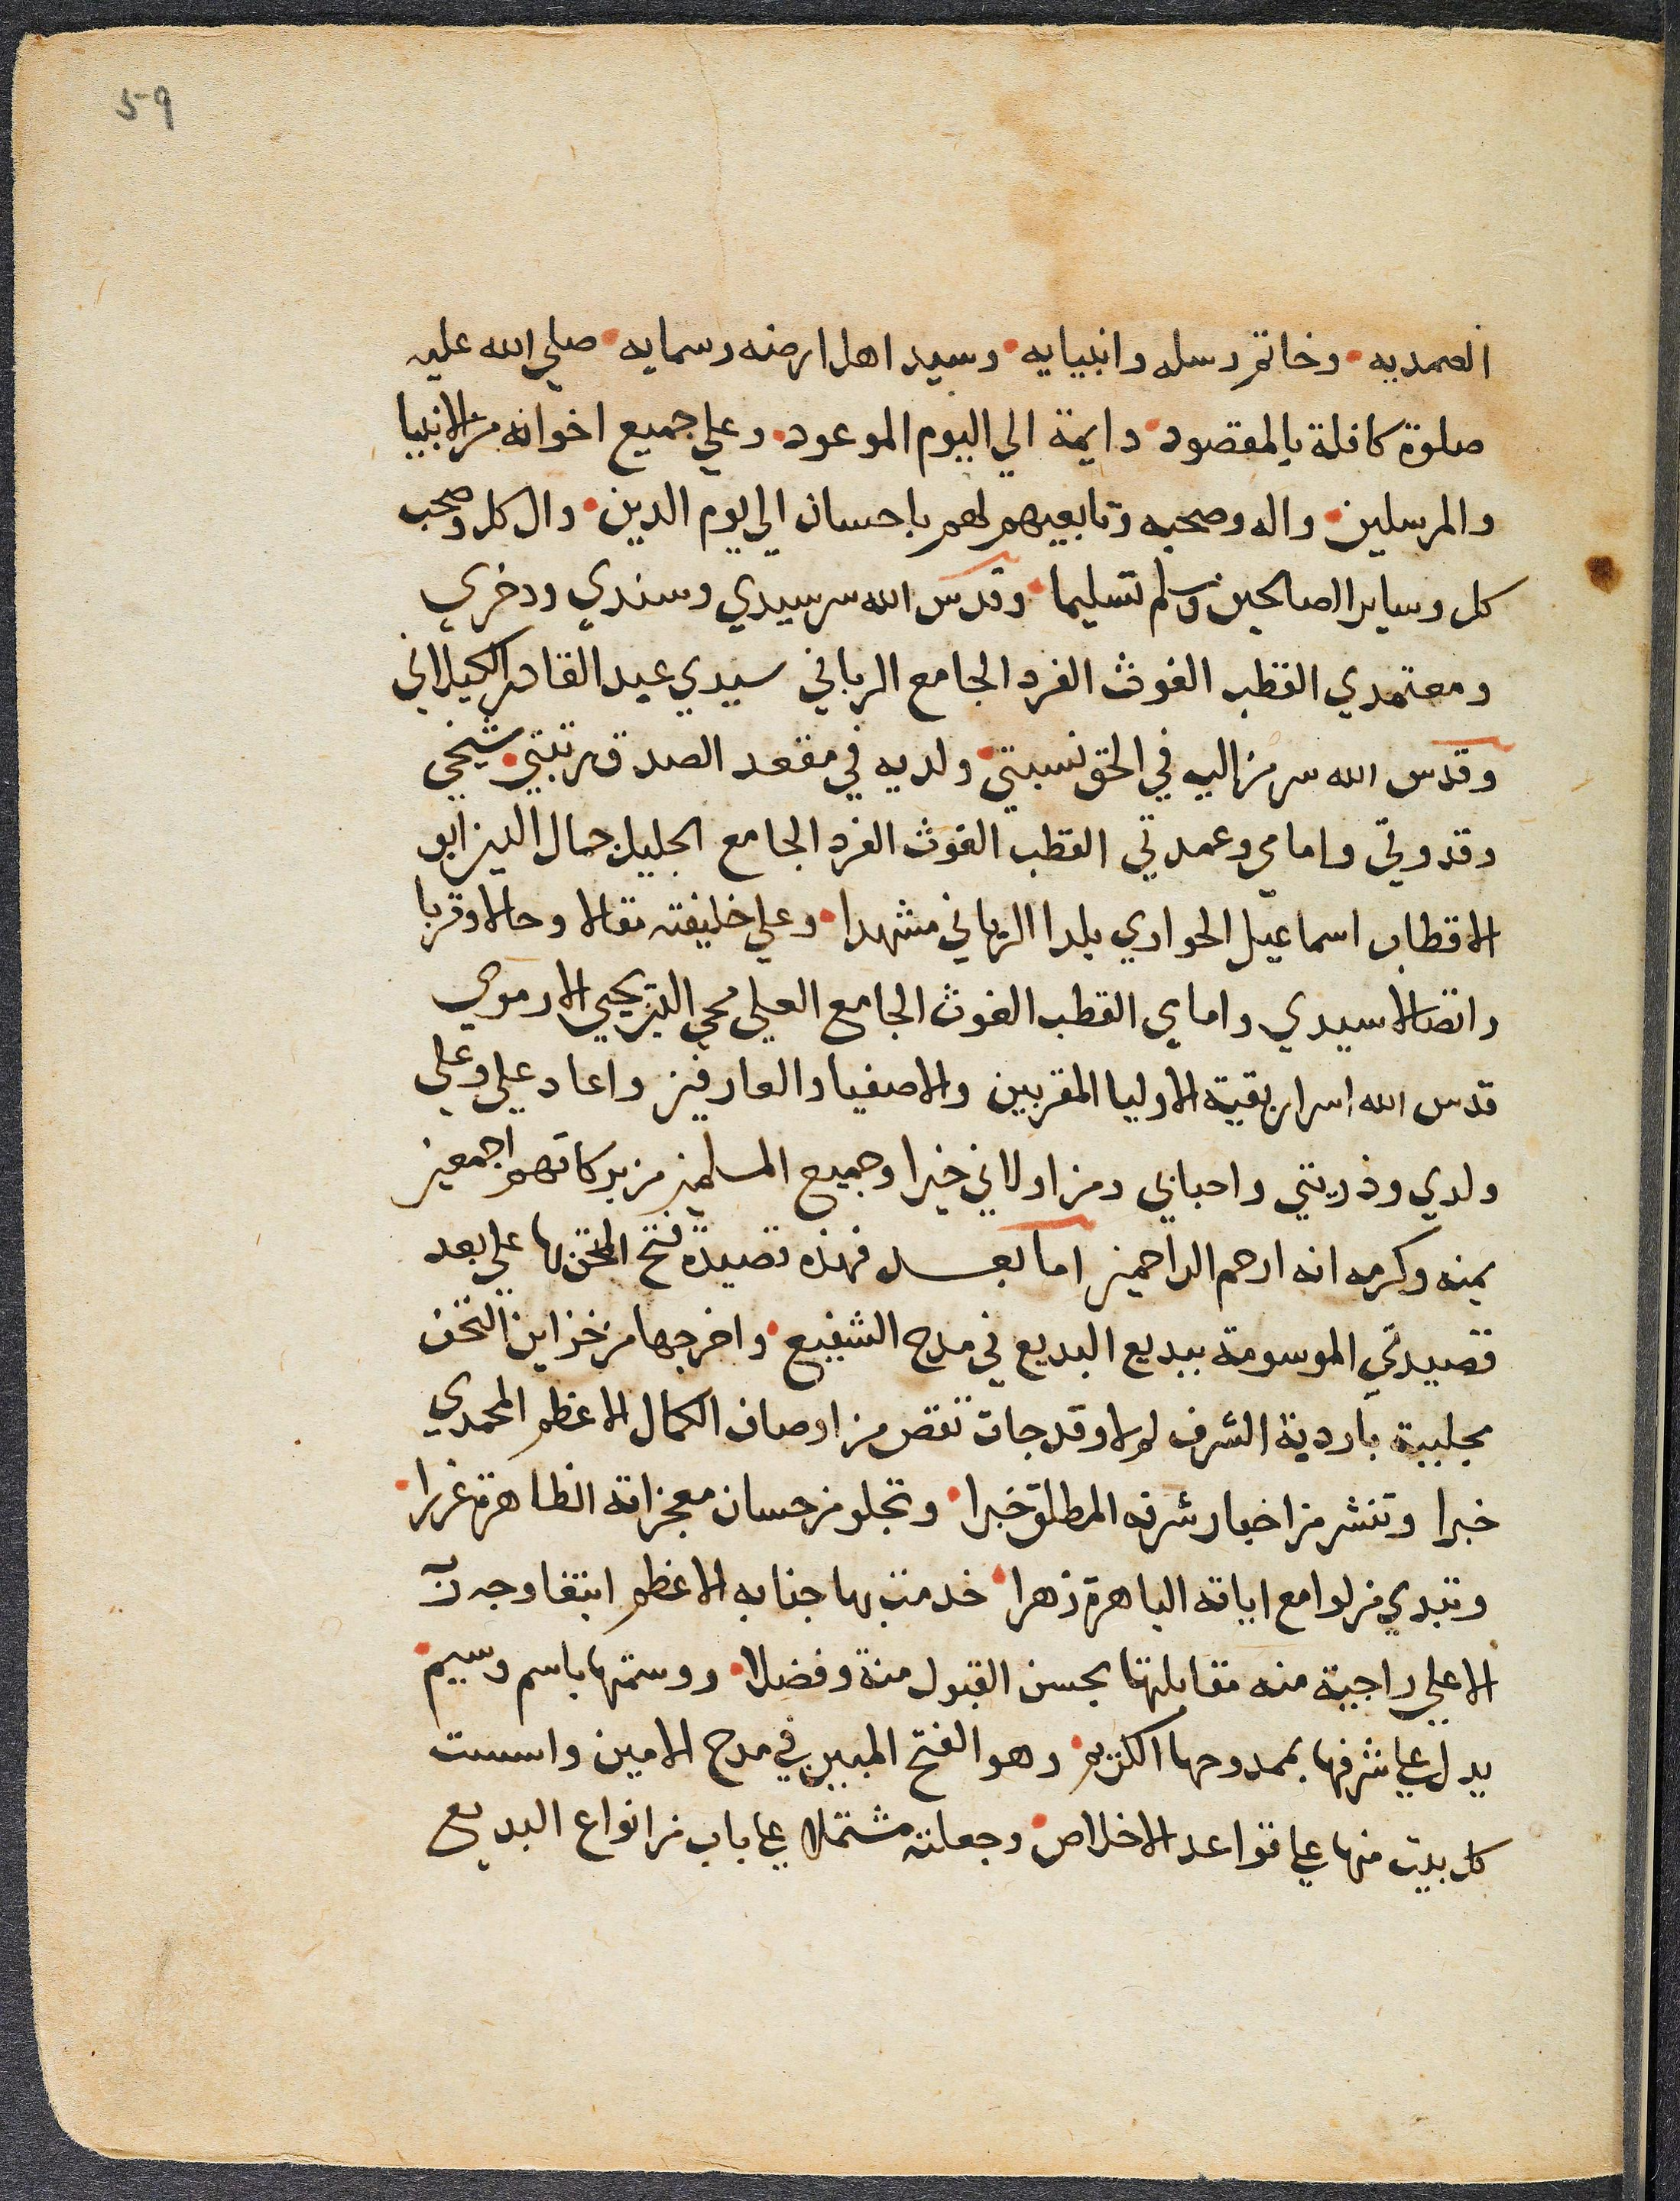 59
الصمديه • وخاتم رسله وانبيايه • وسيد اهل ارضه وسمايه • صلي الله عليه
صلوة كافلة بالمقصود • دايمة الي اليوم الموعود • وعلي جميع اخوانه من الانبيا
والمرسلين • واله وصحبه وتابعيهم لهم باحسان الي يوم الدين • وال كل وصحب
كل وساير الصالحين وسلم تسليما • وقدس الله سر سيدي وسندي وذخري
ومعتمدي القطب الغوث الفرد الجامع الرباني سيدي عبد القادر الكيلاني
وقدس الله سر من اليه في الحق نسبتي • ولديه في مقعد الصدق رتبتي • شيخي
وقدوتي وامامي وعمدتي القطب الغوث الفرد الجامع الجليل جمال الدين ابو
الاقطاب اسماعيل الحواري بلدا الرباني مشهدا • وعلي خليفته مقالا وحالا وقربا
واتصالا سيدي وامامي القطب الغوث الجامع العلي محي الدين يحيي الارموي
قدس الله اسرار بقية الاوليا المقربين والاصفيا والعارفين واعاد علي وعلي
ولدي وذريتي واحبابي ومن اولاني خيرا وجميع المسلمين من بركاتهم اجمعين
بمنه وكرمه انه ارحم الراحمين اما بعد فهذه قصيدة فتح الحق بها علي بعد
قصيدتي الموسومة ببديع البديع في مدح الشفيع • واخرجها من خزاين التحف
بجلببة باردية الشرف لولا وقد جات تقص من اوصاف الكمال الاعظم المحمدي
خبرا وتنشر من اخبار شرفه المطلق خبرا • وتجلو من حسان معجزاته الظاهرة غررا •
وتبدي من لوامع اياته الباهرة زهرا • خدمت بها جنابه الاعظم ابتغا وجه ربه
الاعلي راجية منه مقابلتها بحسن القبول منة وفضلا • ووسمتها باسم وسيم •
يدل علي شرفها بممدوحها الكريم • وهو الفتح المبين في مدح الامين واسست
كل بيت منها علي قواعد الاخلاص • وجعلته مشتملا علي باب من انواع البديع